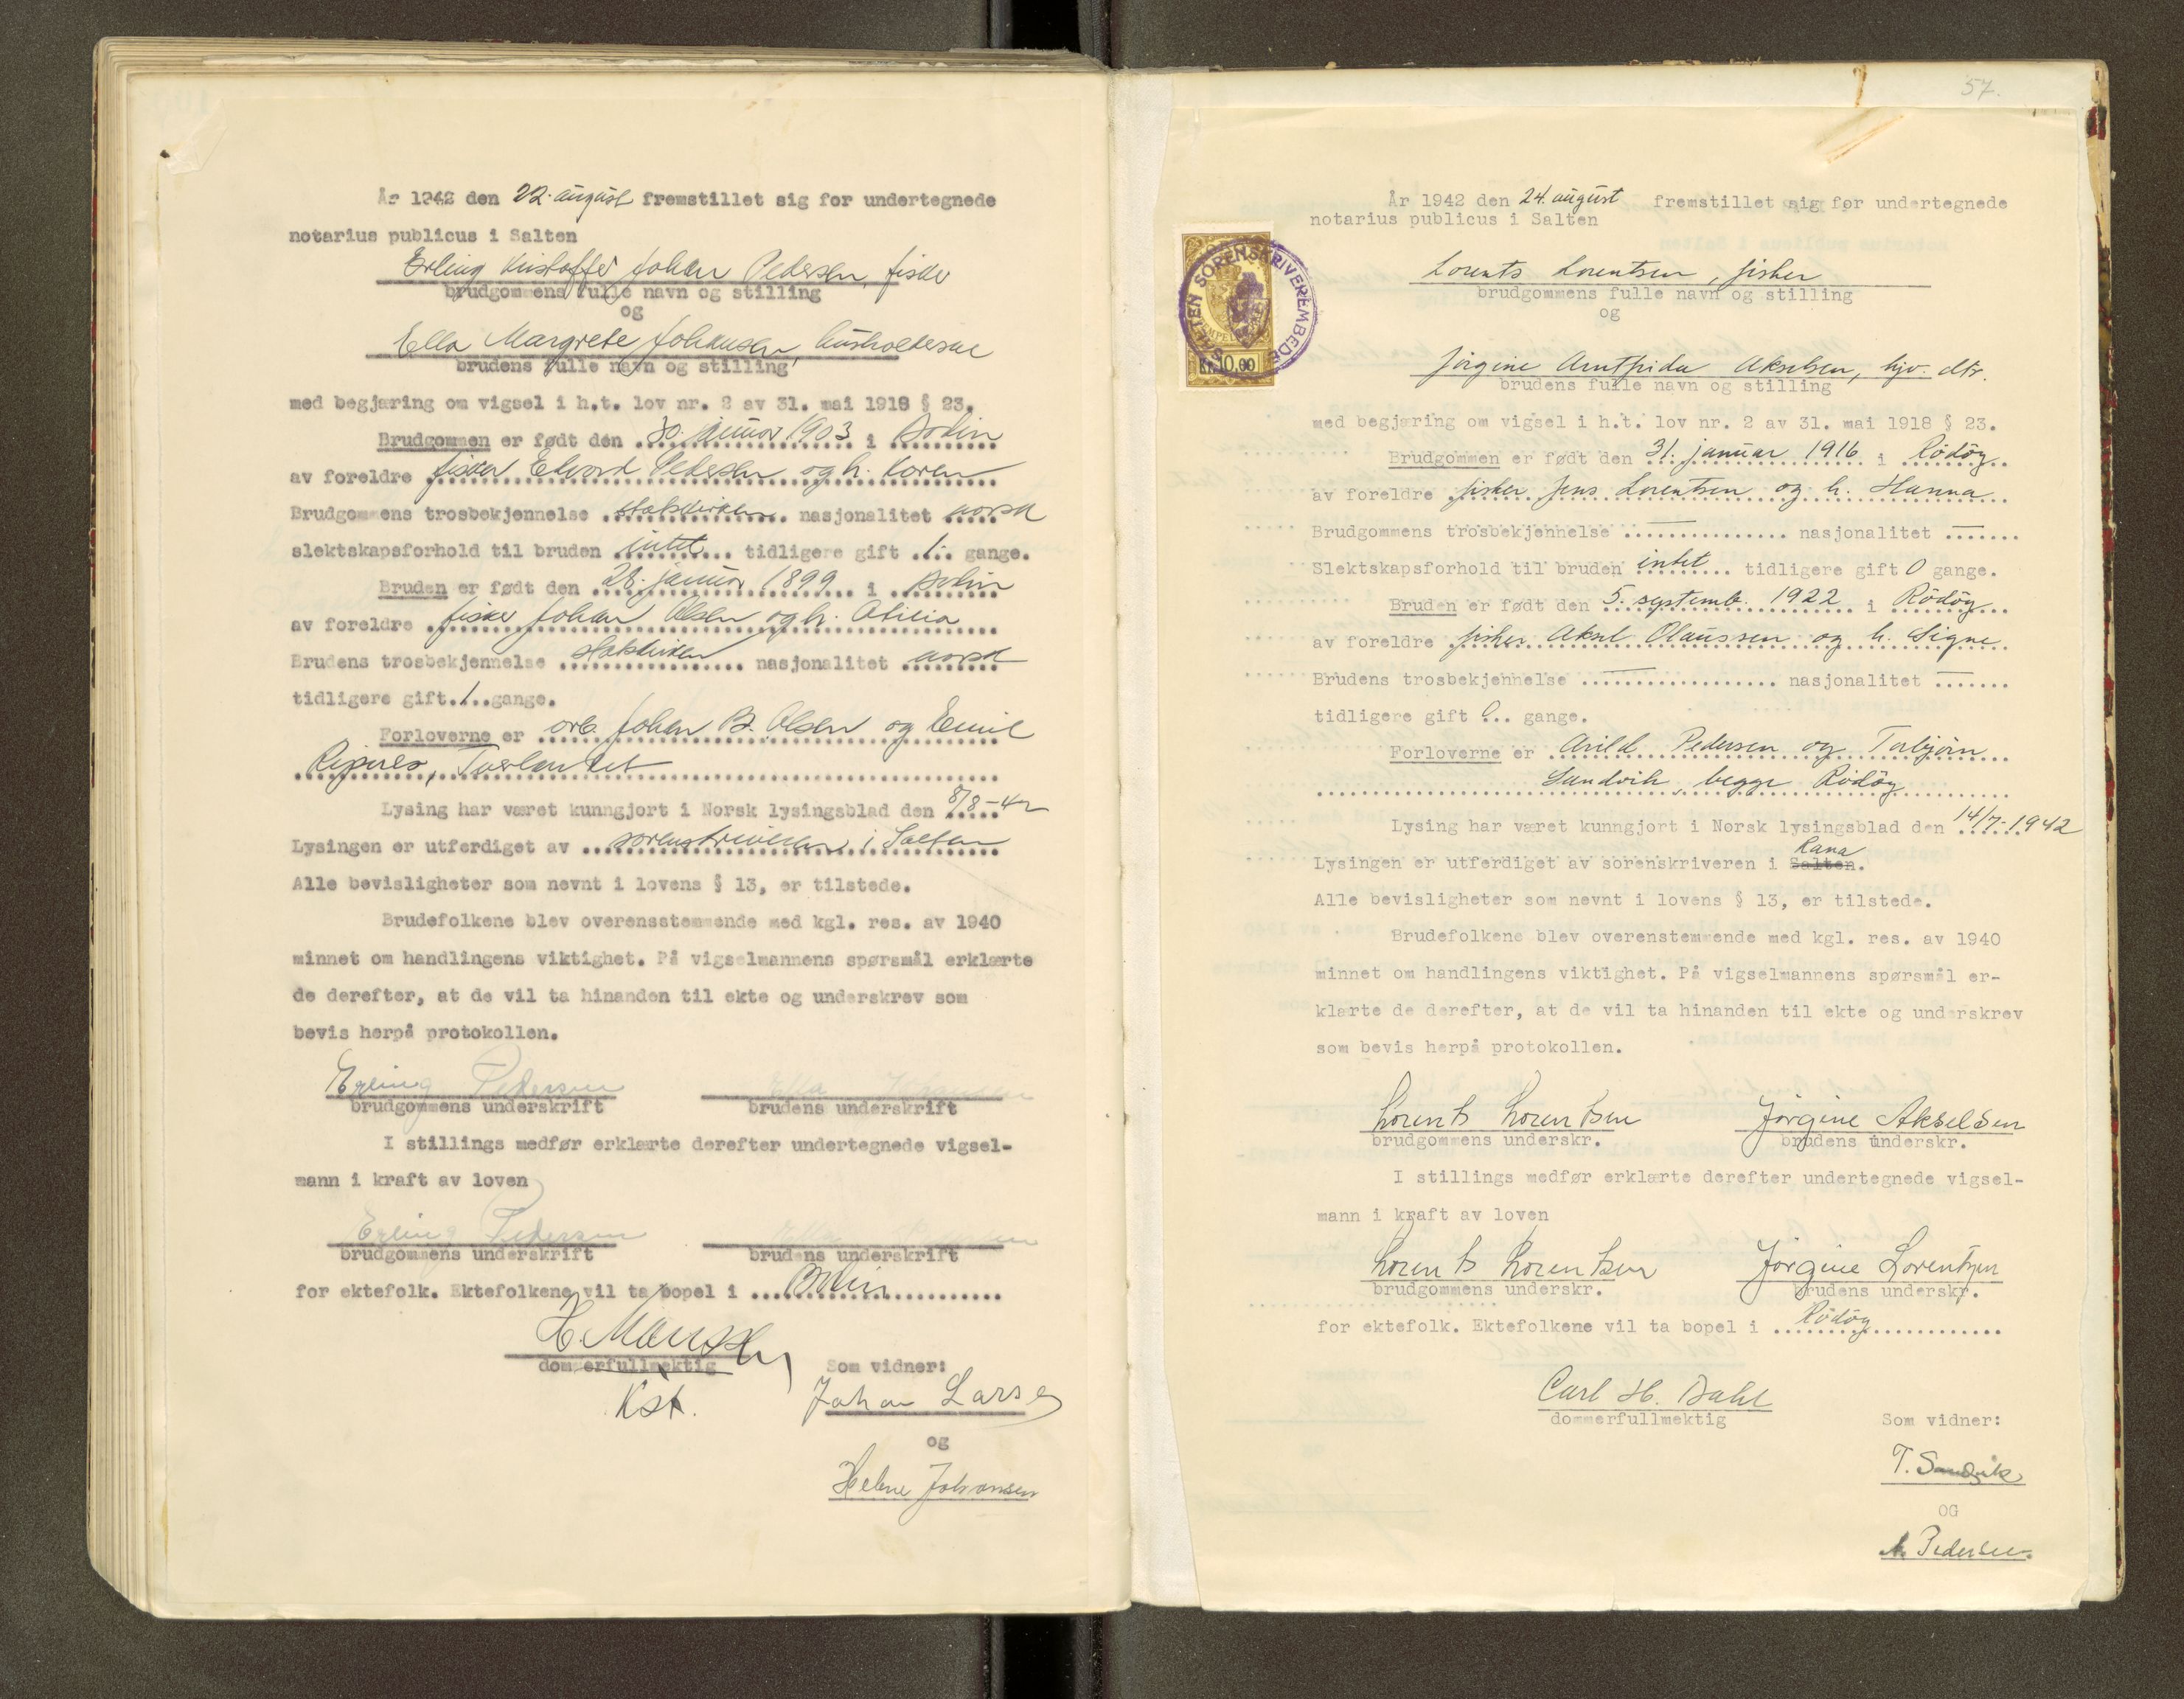 År 1942 den 22. august fremstillet sig for undertegnede
notarius publicus i Salten
Erling Kristoffer Johan Pedersen, fisker
brudgommens fulle navn og stilling
og
Ella Margrete Johansen, husholderske
brudens fulle navn og stilling
med begjæring om vigsel i h.t. lov nr. 2 av 31. mai 1918 § 23.
Brudgommen er født den 30. januar 1903 i Bodin
av foreldre fisker Edvard Pedersen og h. Karen
Brudgommens trosbekjennelse statskirken nasjonalitet norsk
slektskapsforhold til bruden intet tidligere gift 1 gange.
Bruden er født den 28. januar 1899 i Bodin
av foreldre fisker Johan Olsen og h. Otilia
Brudens trosbekjennelse statskirken nasjonalitet norsk
tidligere gift 1 gange.
Forloverne er arb. Johan B. Olsen og Emil
Lysing har været kunngjort i Norsk lysingsblad den 8/8-42
Lysingen er utferdiget av sorenskriveren i Salten
Alle bevisligheter som nevnt i lovens § 13, er tilstede.
Brudefolkene blev overensstemmende med kgl. res. av 1940
minnet om handlingens viktighet. På vigselmannens spørsmål erklærte
de derefter, at de vil ta hinanden til ekte og underskrev som
bevis herpå protokollen.
Erling Pedersen Ella Johansen
brudgommens underskrift brudens underskrift
I stillings medfør erklærte derefter undertegnede vigsel-
mann i kraft av loven
Erling Pedersen Ella Pedersen
brudgommens underskrift brudens underskrift
for ektefolk. Ektefolkene vil ta bopel i Bodin
dommerfullmektig Som vidner:
Kst. Johan Larsen
og
Helene Johansen
57.
SALTEN SORENSKRIVEREMBEDE
Kr. 10.00
År 1942 den 24. august fremstillet sig for undertegnede
notarius publicus i Salten
Lorents Lorentsen, fisker
brudgommens fulle navn og stilling
og
Jørgine Arntfrida Akselsen, hjv. dtr.
brudens fulle navn og stilling
med begjæring om vigsel i h.t. lov nr. 2 av 31. mai 1918 § 23.
Brudgommen er født den 31. januar 1916 i Rödöy
av foreldre fisker Jens Lorentsen og h. Hanna
Brudgommens trosbekjennelse — nasjonalitet —
Slektskapsforhold til bruden intet tidligere gift 0 gange.
Bruden er født den 5. septemb. 1922 i Rödöy
av foreldre fisker Aksel Olaussen og h. Signe
Brudens trosbekjennelse — nasjonalitet —
tidligere gift 0 gange.
Forloverne er Arild Pedersen og Torbjörn
Sandvik, begge Rödöy
Lysing har været kunngjort i Norsk lysingsblad den 14/7-1942
Rana
Lysingen er utferdiget av sorenskriveren i Salten.
Alle bevisligheter som nevnt i lovens § 13, er tilstede.
Brudefolkene blev overenstemmende med kgl. res. av 1940
minnet om handlingens viktighet. På vigselmannens spørsmål er-
klærte de derefter, at de vil ta hinanden til ekte og underskrev
som bevis herpå protokollen.
Lorents Lorentsen Jörgine Akselsen
brudgommens underskr. brudens underskr.
I stillings medfør erklærte derefter undertegnede vigsel-
mann i kraft av loven
Lorents Lorentsen Jörgine Lorentsen
brudgommens underskr. brudens underskr.
for ektefolk. Ektefolkene vil ta bopel i Rödöy
Carl H. Dahl
dommerfullmektig Som vidner:
T. Sandvik
OG
A. Pedersen.